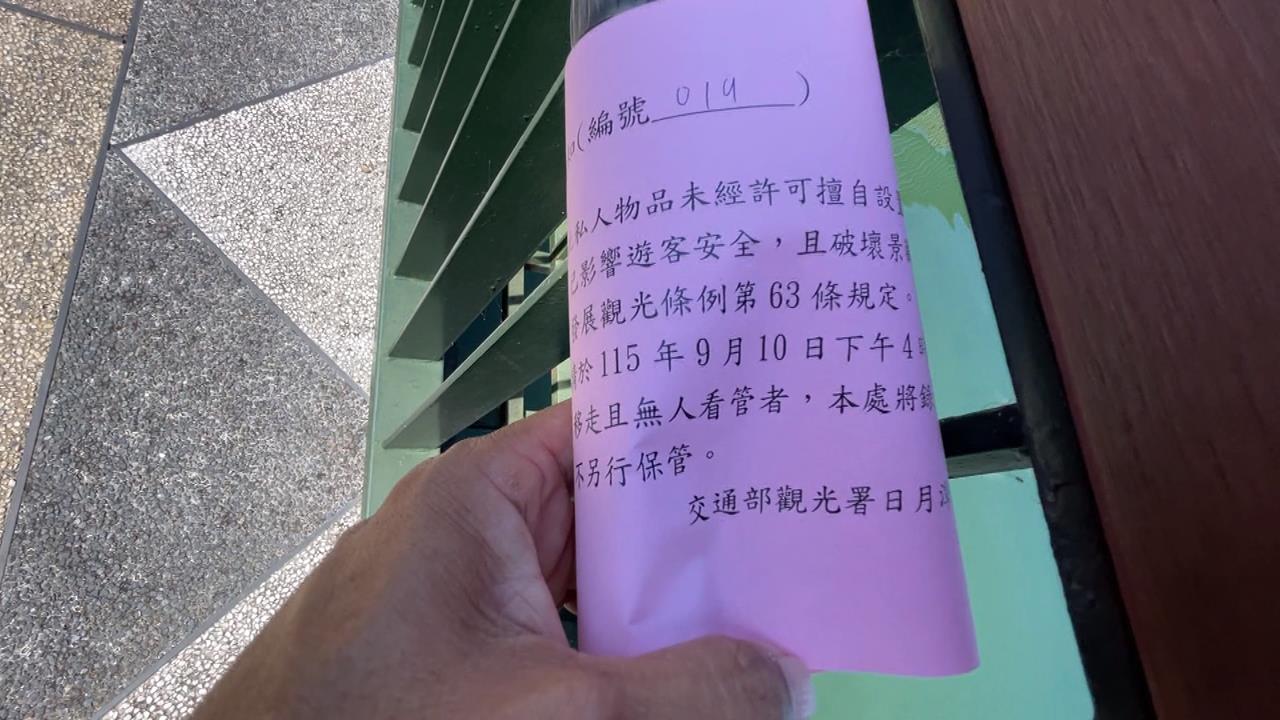 (編號 019 )
私人物品未經許可擅自設
已影響遊客安全，且破壞景
發展觀光條例第 63 條規定。
於 115 年 9 月 10 日下午 4
移走且無人看管者，本處將
不另行保管。
交通部觀光署日月